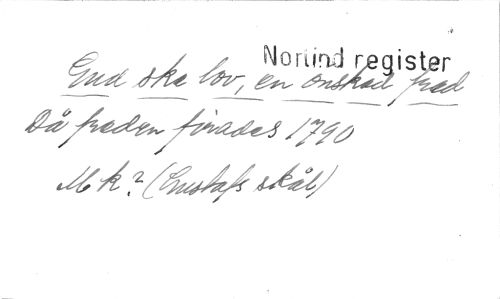 Norlind register
Gud ske lov, en önskad fred
Då freden firades 1790
M k? (Gustafs skål)